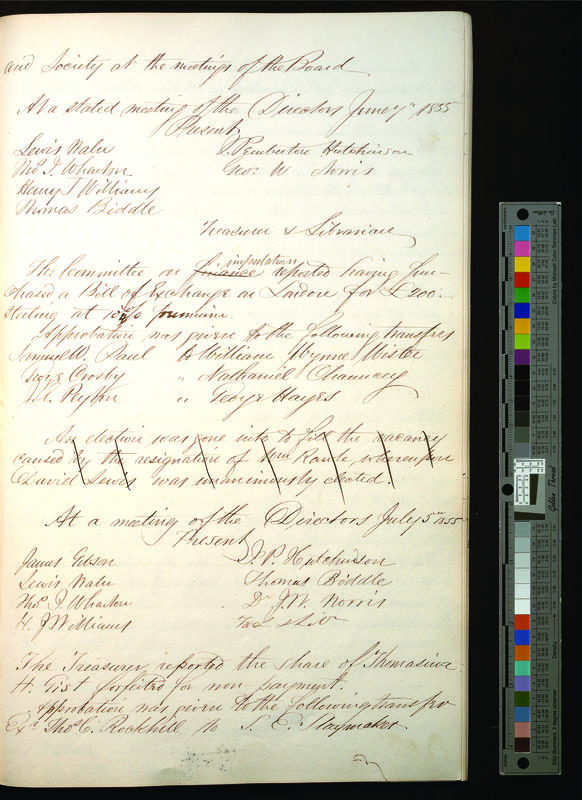 and Society at the meetings of the Board
At a stated meeting of the Directors June 7" 1855
Present
Lewis Waln
Thos. I. Wharton
Henry J Williams
Thomas Biddle
I. Pemberton Hutchinson
Geo. W Norris
Treasurer & Librarian
The Committee on finance importations reported having pur-
chased a Bill of Exchange on London for £200.
Sterling at 10% premium.
Approbation was given to the following transfers
Samuel W. Paul to William Wynne Wister
George Crosby " Nathaniel Chauncey
" George Hayes
An election was gone into to fill the vacancy
caused by the resignation of Wm Rawle, whereupon
David Lewis was unanimously elected.
At a meeting of the Directors July 5th 1855
Present
James Gibson
Lewis Waln
Thos. I. Wharton
H. J Williams
I. P. Hutchinson
Thomas Biddle
Dr. J. W. Norris
The Treasurer reported the share of Thomasina
H. Gist forfeited for non payment.
Approbation was given to the following transfer
Exs. Thos. C. Rockhill to S. E. Slaymaker